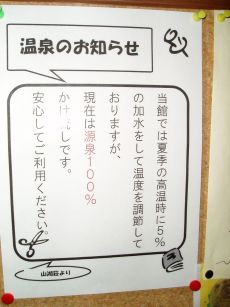 温泉のお知らせ
当館では夏季の高温時に5%
の加水をして温度を調節して
おりますが、
現在は源泉100%
かけ流しです。
安心してご利用ください。
山湖荘より